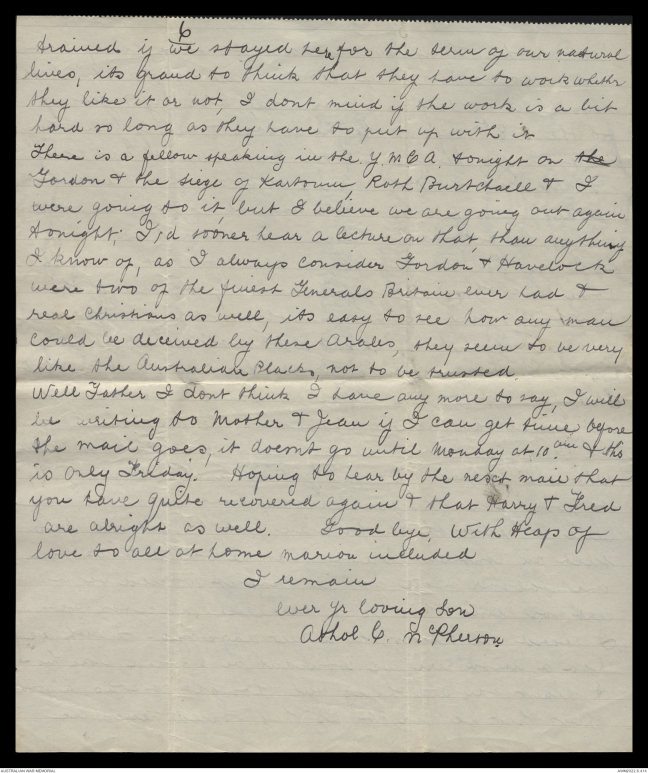 6
trained if we stayed here for the term of our natural
lives, its grand to think that they have to work whether
they like it or not, I dont mind if the work is a bit
hard so long as they have to put up with it
There is a fellow speaking in the Y.M.C.A. tonight on the
Gordon & the siege of Kartoum, Roth Burtchaell & I
were going to it, but I believe we are going out again
tonight; I'd sooner hear a lecture on that, than anything
I know of, as I always consider Gordon & Havelock
were two of the finest Generals Britain ever had &
real Christians as well, its easy to see how any man
could be deceived by these Arabs, they seem to be very
like the Australian Blacks, not to be trusted
Well Father I dont think I have any more to say, I will
be writing to Mother & Jean if I can get time before
the mail goes, it doesnt go until Monday at 10 am & this
is only Friday. Hoping to hear by the next mail that
you have quite recovered again & that Harry & Fred
are alright as well. Good bye, With Heaps of
love to all at home marion included
I remain
ever yr loving Son
Athol C. McPherson
AUSTRALIAN WAR MEMORIAL